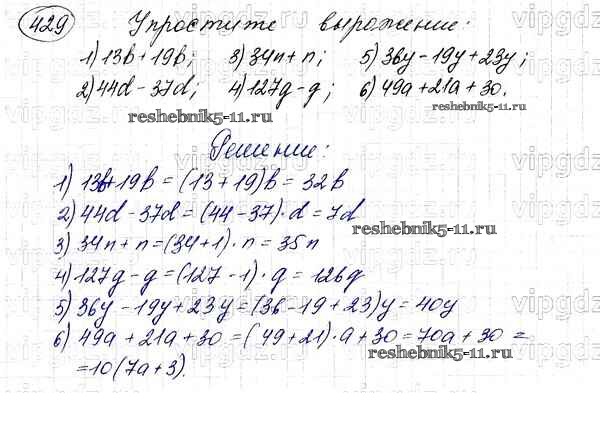 429 Упростите выражение:
1) 13b + 19b; 3) 34n + n; 5) 36y - 19y + 23y;
2) 44d - 37d; 4) 127g - g; 6) 49a + 21a + 30.
reshebnik5-11.ru
reshebnik5-11.ru
Решение:
1) 13b + 19b = (13 + 19)b = 32b
2) 44d - 37d = (44 - 37) · d = 7d
reshebnik5-11.ru
3) 34n + n = (34 + 1) · n = 35n
4) 127g - g = (127 - 1) · g = 126g
5) 36y - 19y + 23y = (36 - 19 + 23)y = 40y
6) 49a + 21a + 30 = (49 + 21) · a + 30 = 70a + 30 =
reshebnik5-11.ru
= 10(7a + 3).
vipgdz.ru